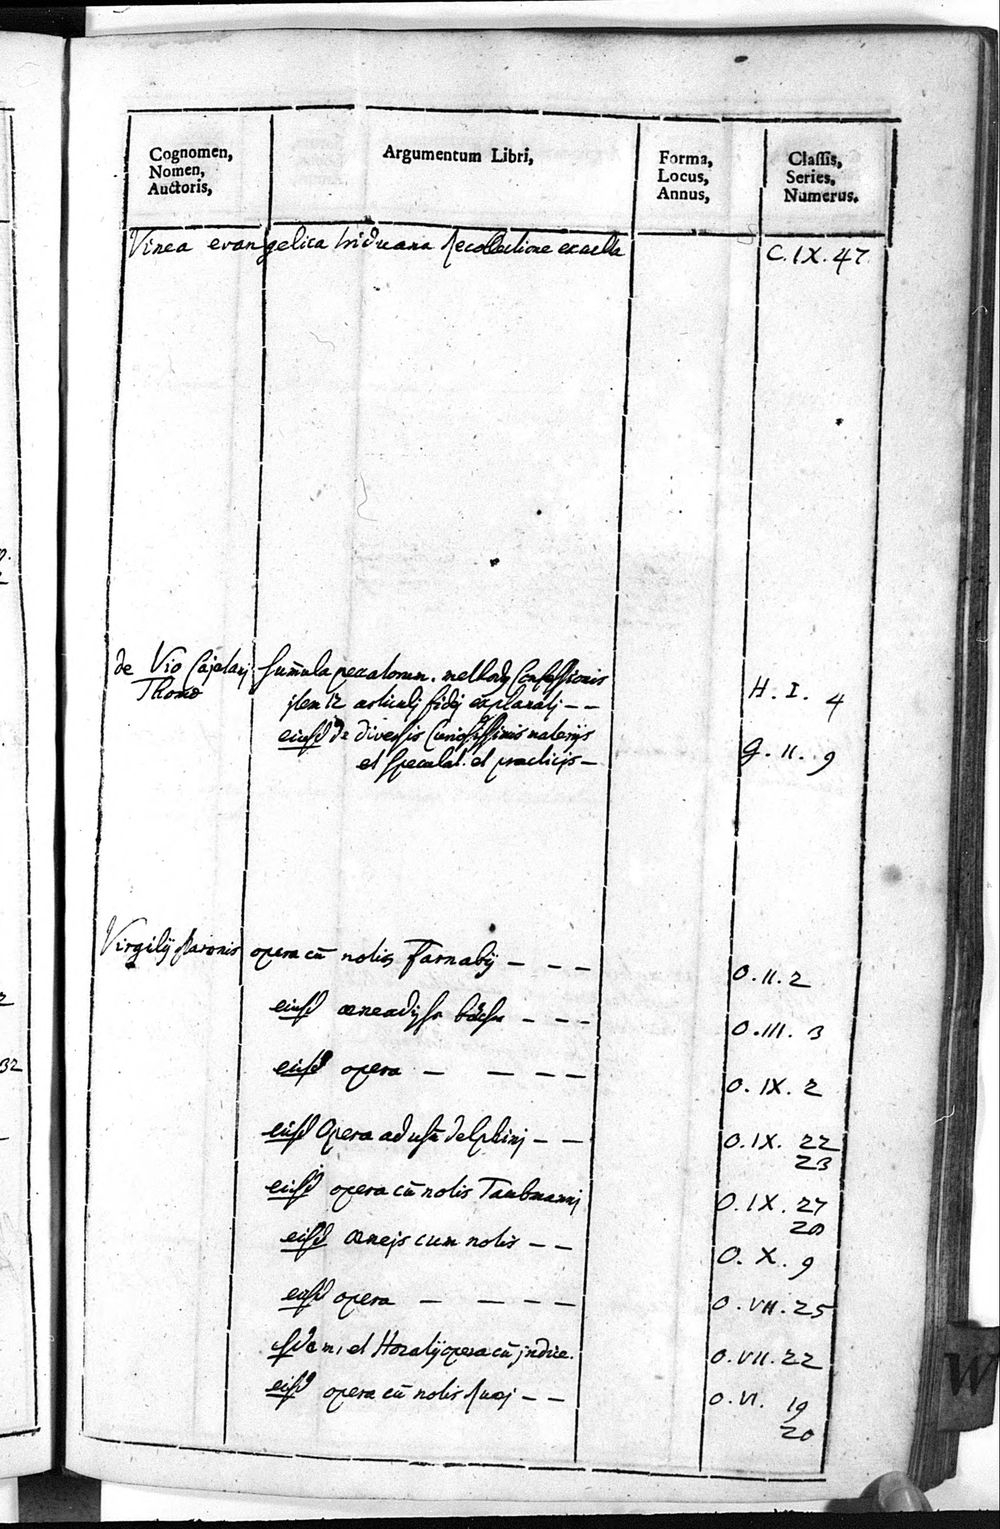 Cognomen,
Nomen,
Auctoris,
Argumentum Libri,
Forma,
Locus,
Annus,
Classis,
Series,
Numerus.
Vinea evangelica triduana Recollectione exculta C. IX. 47
de Vio Cajetanj Sum̄ula peccatorum. methodg Confessionis
Thomæ jtem 12 articulj fidej explanatj – – H. I. 4
eiusd de diversis Curiosissimis materijs
et speculat. et practicis – G. II. 9
Virgilij Maronis opera cū notis Farnabij – – – O. II. 2
eiusd æneadis – – – O. III. 3
eiusd opera – – – – O. IX. 2
eiusd Opera ad usū delphinj – – O. IX. 22
23
eiusd opera cū notis Taubmannj O. IX. 27
28
eiusd æneis cum notis – – O. X. 9
eiusd opera – – – – O. VII. 25
et Horatij opera cū jndice. O. VII. 22
eiusd opera cū notis Ruæj – – O. VI. 19
20
32
W